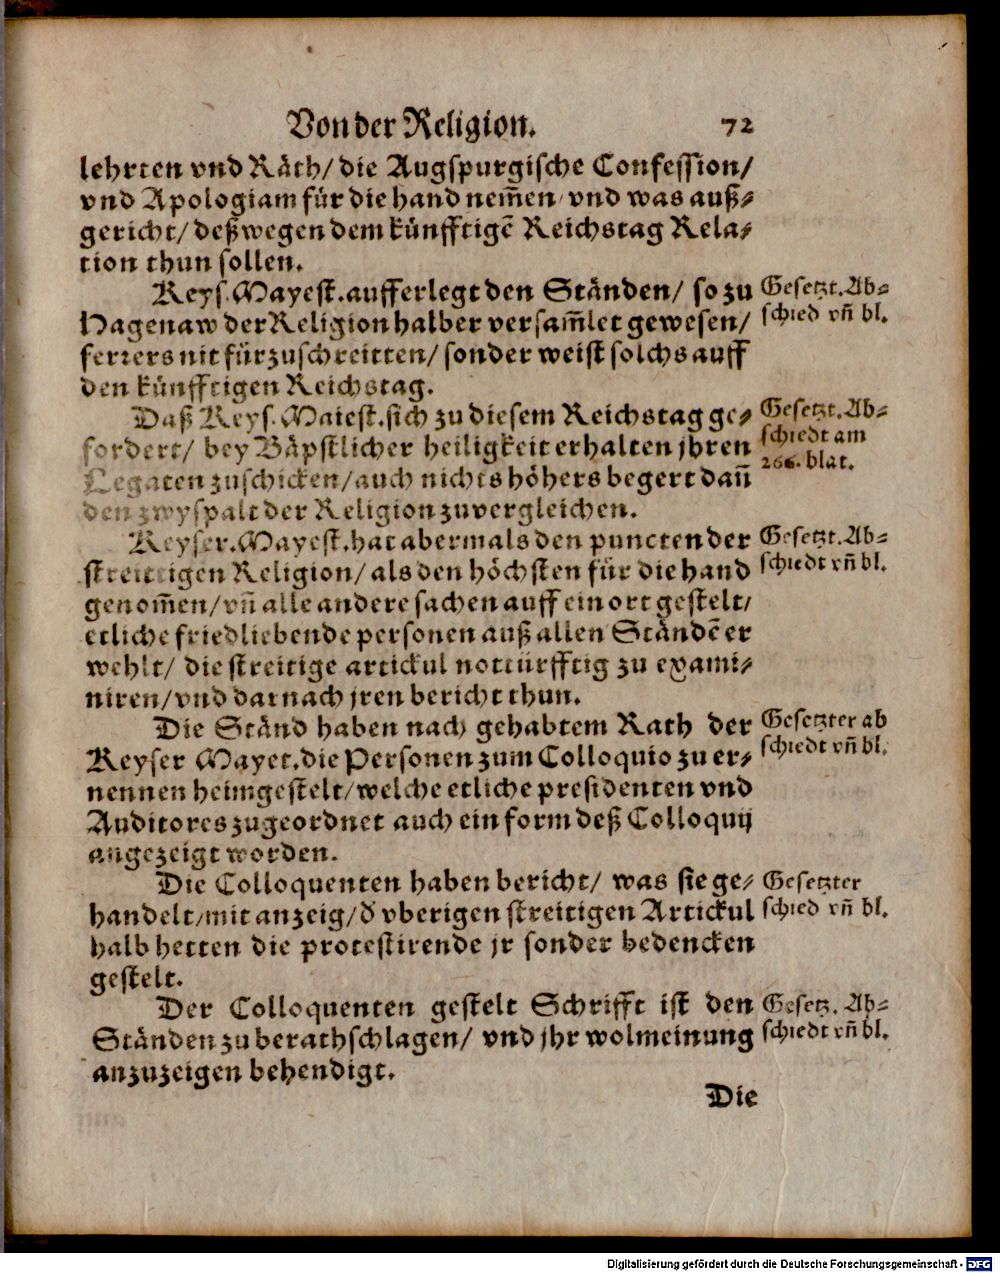 Von der Religion. 72
lehrten vnd Räth/ die Augspurgische Confession/
vnd Apologiam für die hand nem̃en/ vnd was auß⸗
gericht/ deßwegen dem künfftigẽ Reichstag Rela⸗
tion thun sollen.
Keys. Mayest. aufferlegt den Ständen/ so zu
Hagenaw der Religion halber versam̃let gewesen/
ferrers nit fürzuschreitten/ sonder weist solchs auff
den künfftigen Reichstag.
Gesetzt. Ab⸗
schied vñ bl.
Daß Keys. Maiest. sich zu diesem Reichstag ge⸗
fordert/ bey Bäpstlicher heiligkeit erhalten jhren
Legaten zuschicken/ auch nichts höhers begert dañ
den zwyspalt der Religion zuvergleichen.
Gesetzt. Ab⸗
schiedt am
266. blat.
Keyser. Mayest. hat abermals den puncten der
streittigen Religion/ als den höchsten für die hand
genom̃en/ vñ alle andere sachen auff ein ort gestelt/
etliche friedliebende personen auß allen Ständẽ er
wehlt/ die streitige artickul notturfftig zu exami⸗
niren/ vnd darnach jren bericht thun.
Gesetzt. Ab⸗
schiedt vñ bl.
Die Ständ haben nach gehabtem Rath der
Keyser Mayet. die Personen zum Colloquio zu er⸗
nennen heimgestelt/ welche etliche presidenten vnd
Auditores zugeordnet auch ein form deß Colloquij
angezeigt worden.
Gesetzter ab
schiedt vñ bl.
Die Colloquenten haben bericht/ was sie ge⸗
handelt/ mit anzeig/ đ vberigen streitigen Artickul
halb hetten die protestirende jr sonder bedencken
gestelt.
Gesetzter
schied vñ bl.
Der Colloquenten gestelt Schrifft ist den
Ständen zu berathschlagen/ vnd jhr wolmeinung
anzuzeigen behendigt.
Gesetz. Ab⸗
schiedt vñ bl.
Die
Digitalisierung gefördert durch die Deutsche Forschungsgemeinschaft - DFG